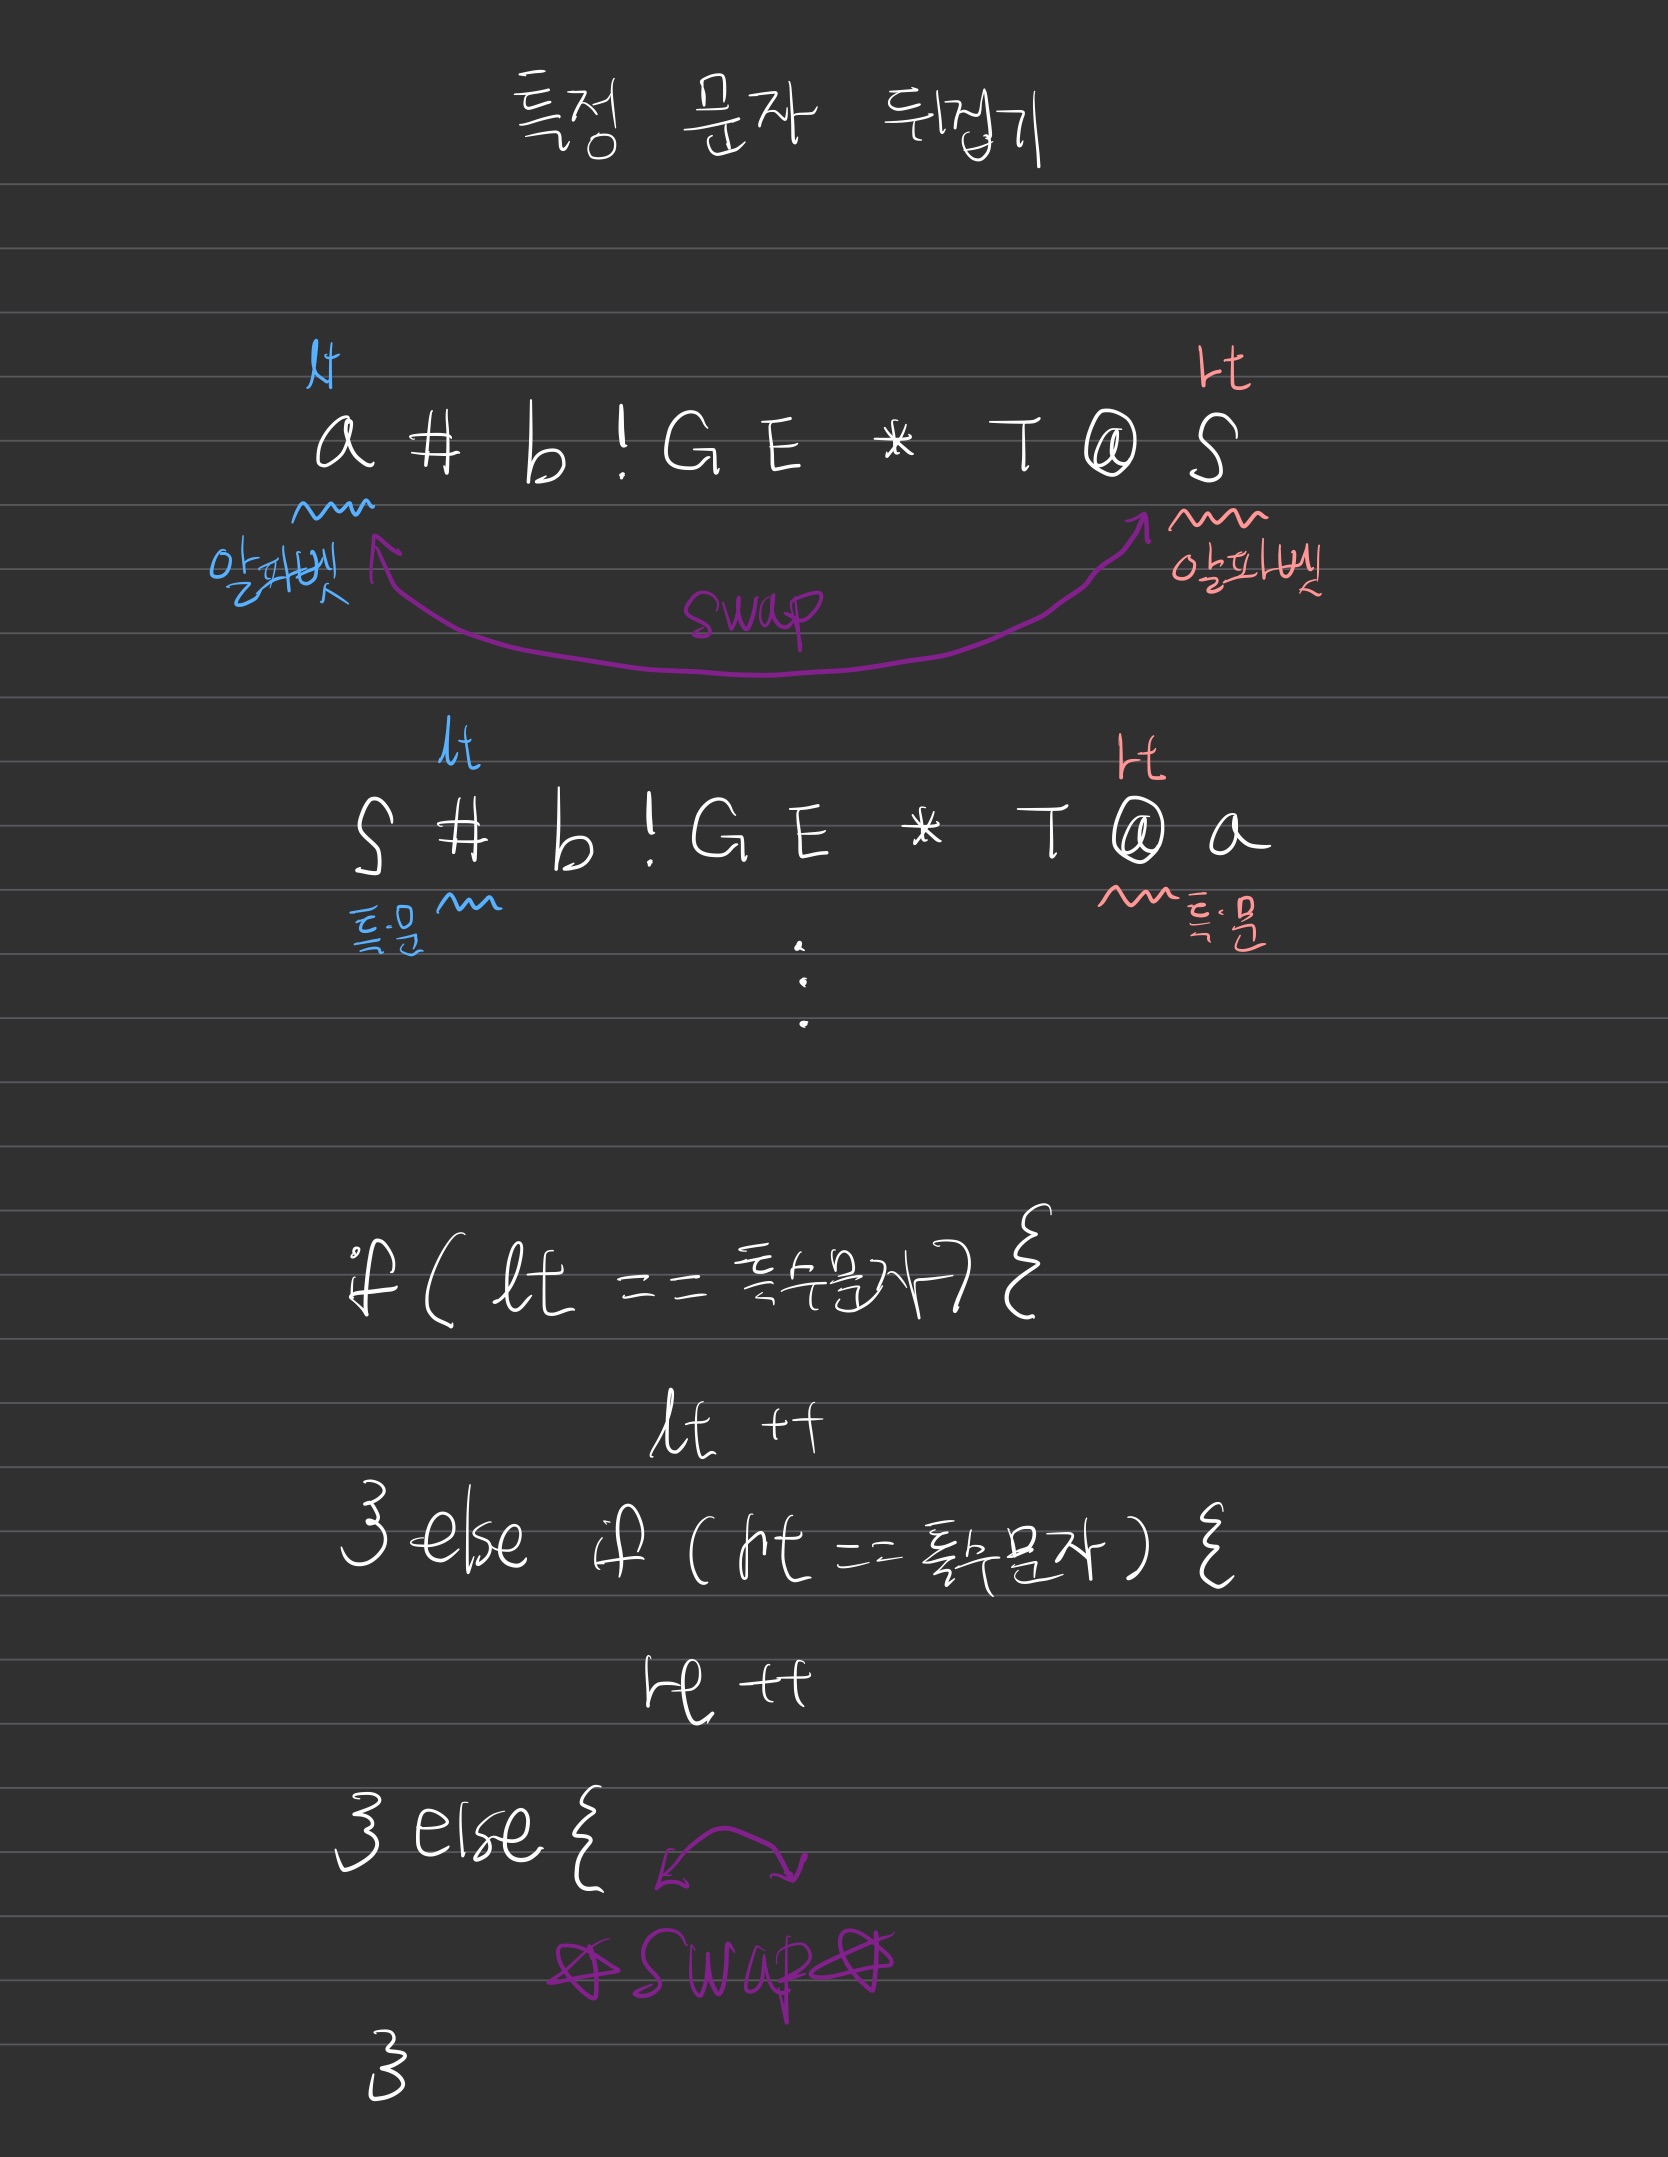 특정 문자 뒤집기
lt rt
a # b ! G E * T @ S
알파벳 알파벳
swap
lt rt
S # b ! G E * T @ a
특.문 특.문
if ( lt == 특수문자) {
lt ++
} else if (rt == 특수문자) {
rt ++
} else {
☆ swap ☆
}